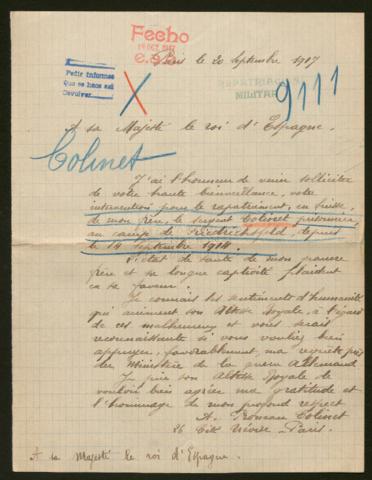 Fecho
Paris le 20 Septembre 1917
Pedir informes
que se hace así
Devolver
REPATRIACIÓN
MILITAR
9111
A sa Majesté le roi d'Espagne.
Colinet
J'ai l'honneur de venir solliciter
de votre haute bienveillance, votre
intervention pour le rapatriement, en Suisse
de mon frère, le sergent Colinet prisonnier
au camp de Friedrichsfeld, depuis
le 14 Septembre 1914.
L'état de santé de mon pauvre
frère et sa longue captivité plaident
en sa faveur.
Je connais les sentiments d'humanité
qui animent son Altesse Royale, à l'égard
de ces malheureux et vous serais
reconnaissante si vous vouliez bien
appuyer, favorablement, ma requête près
du Ministère de la guerre Allemand
Je prie son Altesse Royale de
vouloir bien agréer ma gratitude et
l'hommage de mon profond respect
A. Colinet
26 Cité Trévise - Paris.
A sa Majesté le roi d'Espagne.